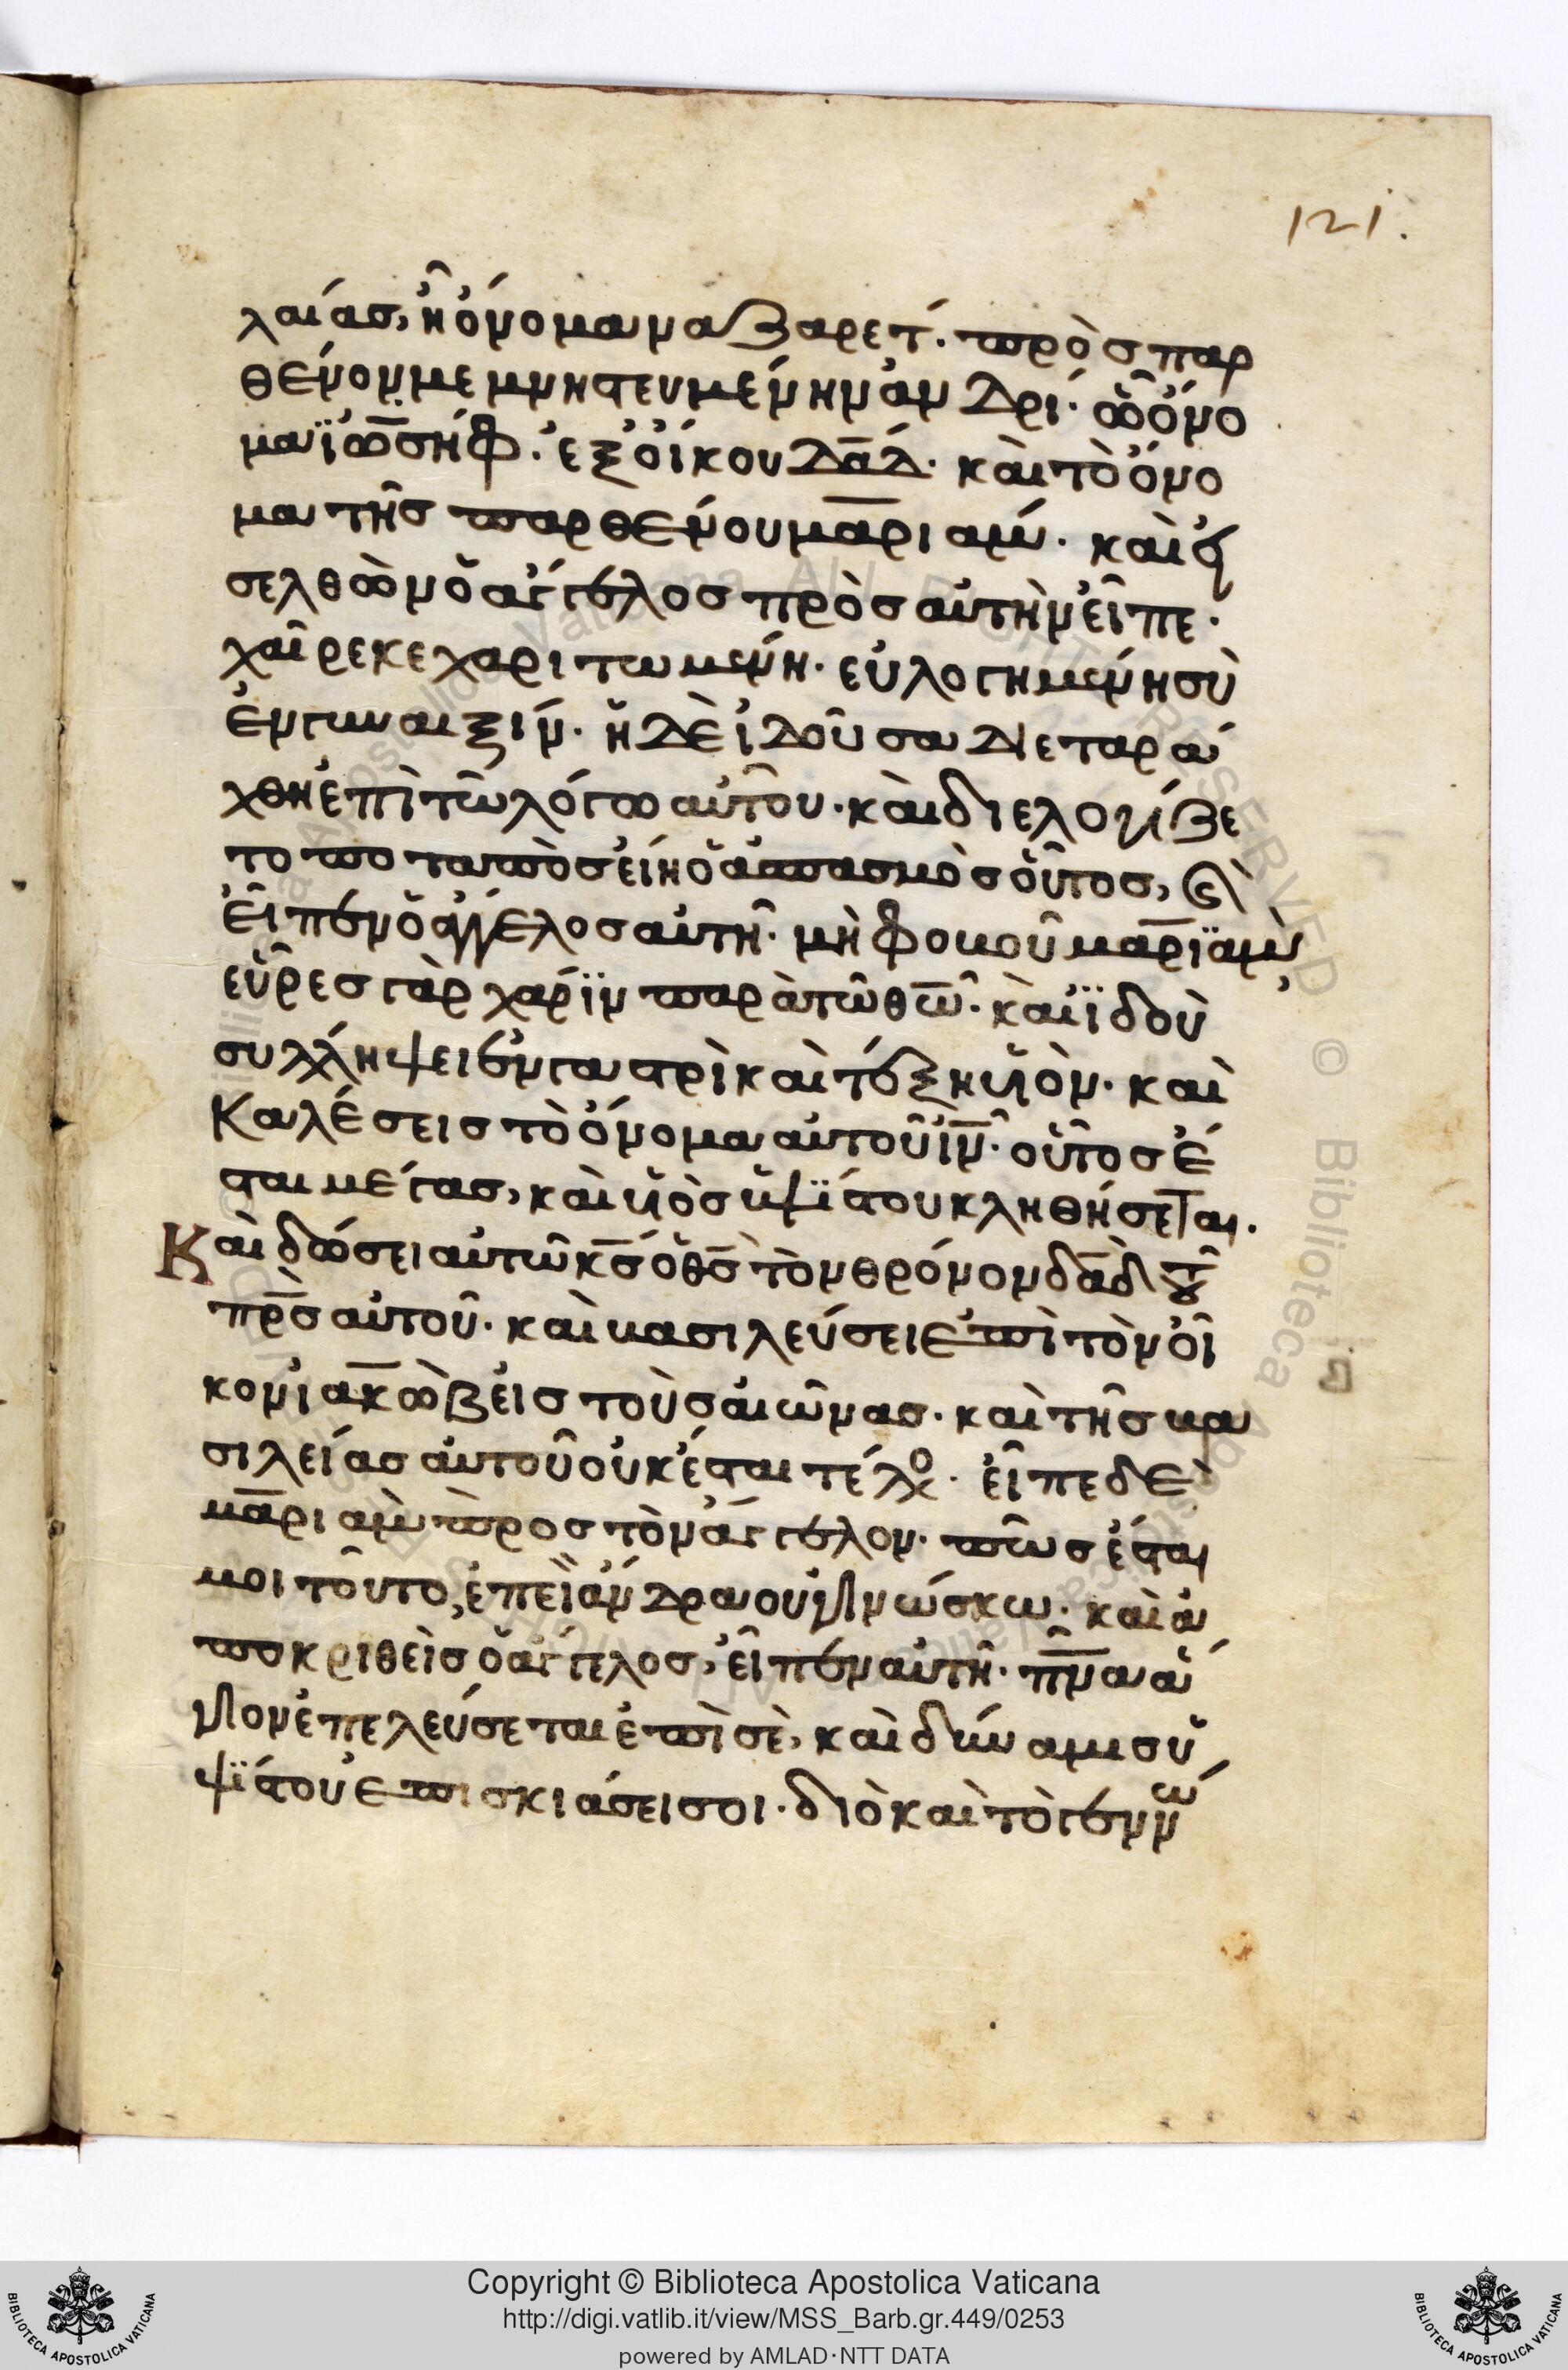 121.
λαίας, ἧ ὄνομα ναζαρέτ. πρὸς παρ
θένον μεμνηστευμένην ἀνδρί. ὧ ὄνο
μα ἰωσήφ. ἐξ οἴκου δαδ. καὶ τὸ ὄνο
μα τῆς παρθένου μαριάμ. καὶ εἰ
σελθὼν ὁ ἄγγελος πρὸς αὐτὴν εἶπε.
χαῖρε κεχαριτωμένη. εὐλογημένη σὺ
ἐν γυναιξίν. ἡ δὲ ἰδοῦσα διεταρά
χθη ἐπὶ τῶ λόγω αὐτοῦ. καὶ διελογίζε
το ποταπὸς εἴη ὁ ἀσπασμὸς οὗτος, καὶ
εἶπεν ὁ ἄγγελος αὐτῆ. μὴ φοβοῦ μαριὰμ,
εὗρες γὰρ χάριν παρὰ τῶ θω. καὶ ἰδοὺ
συλλήψει ἐν γαστρὶ καὶ τέξη υἱὸν. καὶ
καλέσεις τὸ ὄνομα αὐτοῦ ιν. οὗτος ἔ
σται μέγας, καὶ υἱὸς ὑψίστου κληθήσεται.
Καὶ δώσει αὐτῶ κς ὁ θς τὸν θρόνον δαδ τοῦ
πρς αὐτοῦ. καὶ βασιλεύσει ἐπὶ τὸν οἶ
κον ἰακὼβ εἰς τοὺς αἰῶνας. καὶ τῆς βα
σιλείας αὐτοῦ οὐκ ἔσται τέλος. εἶπε δὲ
μαριὰμ πρὸς τὸν ἄγγελον. πῶς ἔσται
μοι τοῦτο, ἐπεὶ ἄνδρα οὐ γινώσκω. καὶ ἀ
ποκριθεὶς ὁ ἄγγελος, εἶπεν αὐτῆ. πνα ἅ
γιον ἐπελεύσεται ἐπὶ σὲ, καὶ δύναμις ὑ
ψίστου ἐπισκιάσει σοι. διὸ καὶ τὸ γεννώ
Copyright © Biblioteca Apostolica Vaticana
http://digi.vatlib.it/view/MSS_Barb.gr.449/0253
powered by AMLAD·NTT DATA
BIBLIOTECA APOSTOLICA VATICANA
BIBLIOTECA APOSTOLICA VATICANA